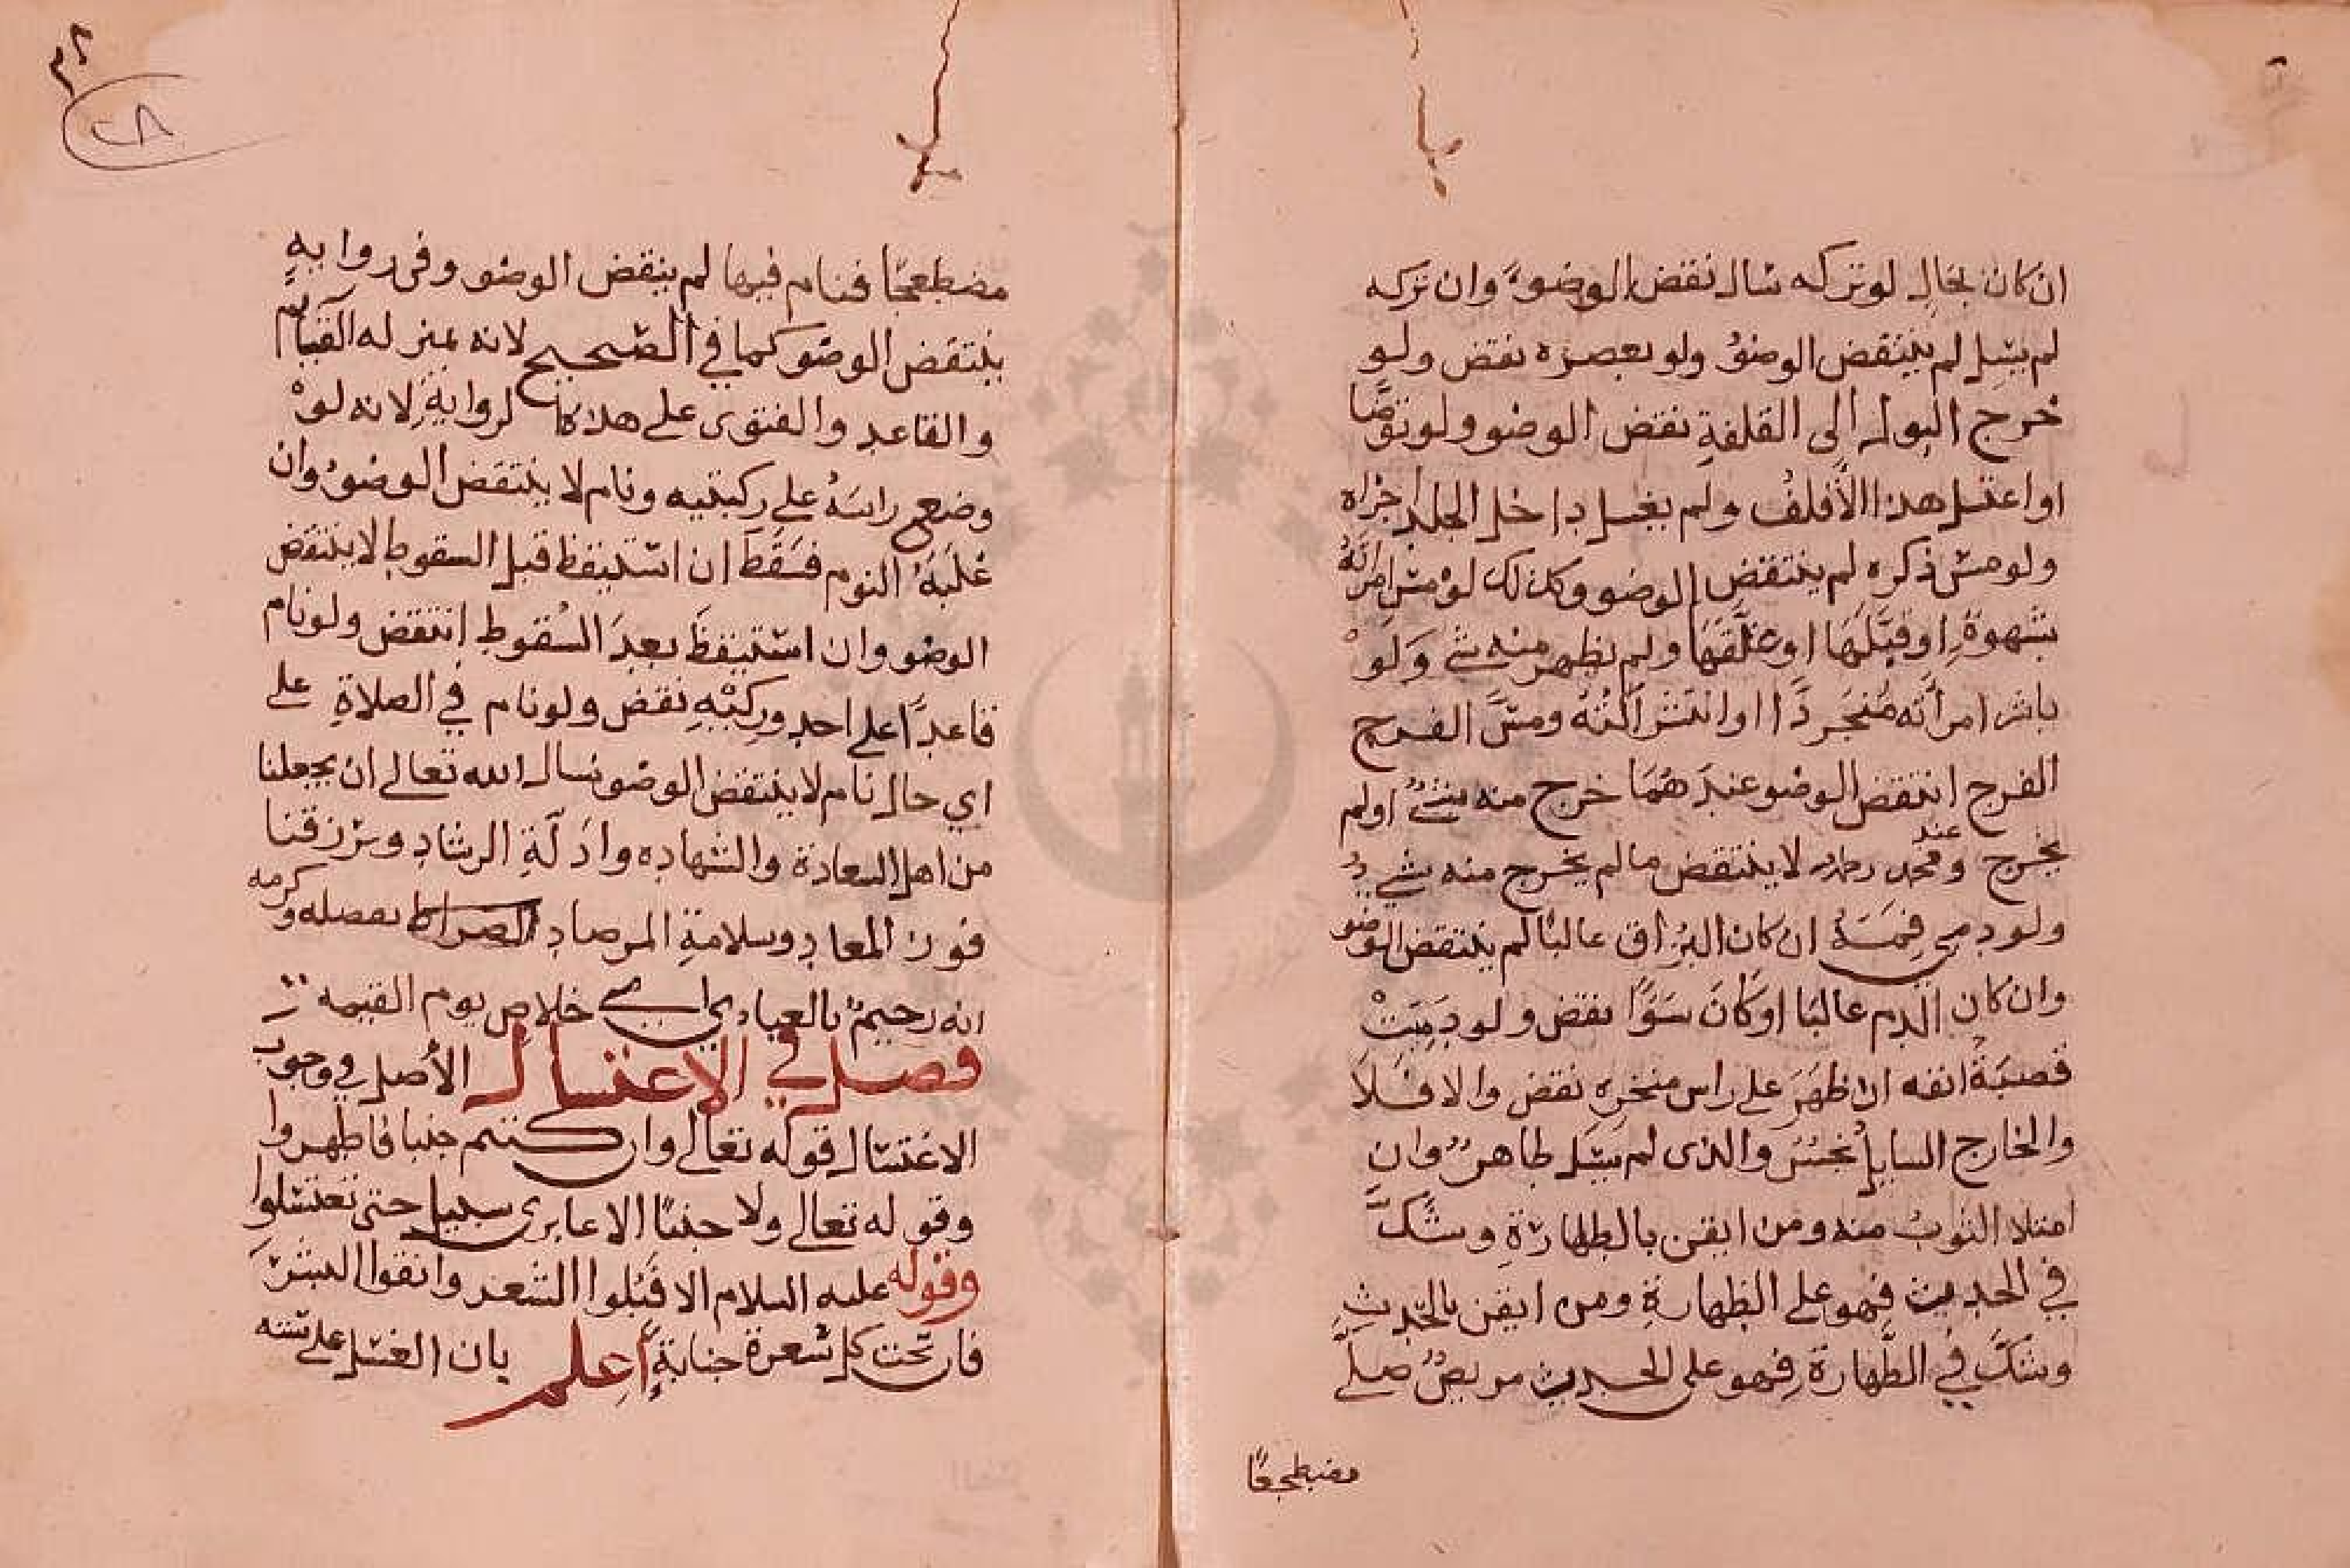 ان كان بحال لو تركه سال نقض الوضوء وان تركه
لم يسل لم ينتقض الوضوء ولو بعصره نقض ولو
خرج البول الى القلفة نقض الوضو ولو توضا
او اغتسل هذا الأقلف ولم يغسل داخل الجلد اجزاه
ولو مس ذكره لم ينتقض الوضو وكذلك لو مس امرأته
بشهوة او قبلها او عانقها ولم يظهر منه شي ولو
باشر امرأته متجردا او انتشر آلته ومس الفرج
الفرج انتقض الوضو عندهما خرج منه شئ او لم
يخرج وعند محمد رحمه لا ينتقض ما لم يخرج منه شي
ولو دمي فمه ان كان البزاق غالبا لم ينتقض الوضو
وان كان الدم غالبا او كان سوا نقض ولو دميت
قصبة انفه ان ظهر على راس منخره نقض والا فلا
والخارج السايل نجس والذى لم يسل طاهر وان
امتلا الثوب منه ومن ايقن بالطهارة وشك
في الحديث فهو على الطهارة ومن ايقن بالحدث
وشك في الطهارة فهو على الحديث مريض صلى
مضطجعا
٢٨
مضطجعا فنام فيها لم ينقض الوضو وفى رواية
ينتقض الوضو كما في الصحيح لانه بمنزله القيام
والقاعد والفتوى على هذه الرواية لانه لو
وضع راسه على ركبتيه ونام لا ينتقض الوضوء وان
غلبه النوم فسقط ان استيقظ قبل السقوط لا ينتقض
الوضو وان استيقظ بعد السقوط انتقض ولو نام
قاعدا على احد وركيه نقض ولو نام في الصلاة على
اي حال نام لا ينتقض الوضو نسال الله تعالى ان يجعلنا
من اهل السعادة والشهاده وادلة الرشاد ويرزقنا
فوز المعاد وسلامة المرصاد بفضله وكرمه
انه رحيم بالعباد خلاص يوم القيمه
فصل في الاغتسال الأصل في وجوب
الاغتسال قوله تعالى وان كنتم جنبا فاطهروا
وقوله تعالى ولا جنبا الا عابرى سبيل حتى تغتسلوا
وقوله عليه السلام الا فبلوا الشعر وانقوا البشر
فان تحت كل شعرة جنابة اعلم بان الغسل على ستة